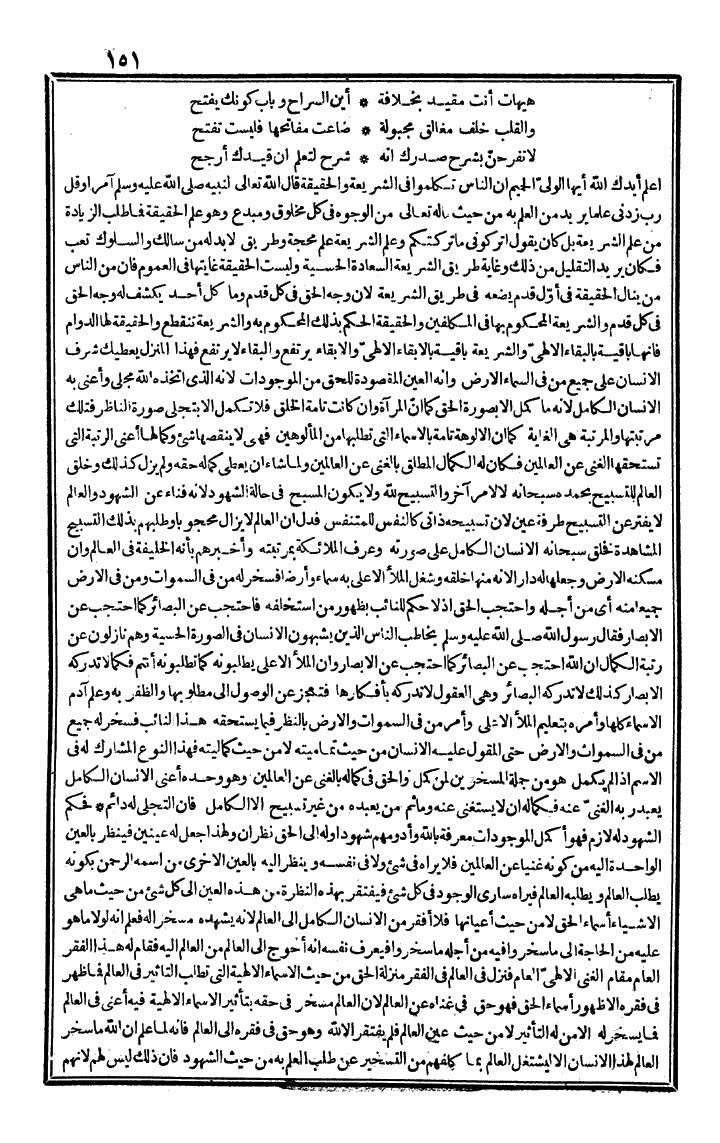 ١٥١
هيهات أنت مقيد بخلافة * أين السراح وباب كونك يفتح
والقلب خلف مغالق مجبولة * ضاعت مفاتحها فليست تفتح
لا تفرحنّ بشرح صدرك انه * شرح لتعلم ان قيدك أرجح
اعلم أيدك الله أيها الولىّ الحميم ان الناس تكلموا فى الشريعة والحقيقة قال الله تعالى لنبيه صلى الله عليه وسلم آمرا وقل
رب زدنى علما يريد من العلم به من حيث ماله تعالى من الوجوه فى كل مخلوق ومبدع وهو علم الحقيقة فما طلب الزيادة
من علم الشريعة بل كان يقول اتركونى ما تركتكم وعلم الشريعة علم محجة وطريق لابد له من سالك والسلوك تعب
فكان يريد التقليل من ذلك وغاية طريق الشريعة السعادة الحسية وليست الحقيقة غايتها فى العموم فان من الناس
من ينال الحقيقة فى أوّل قدم يضعه فى طريق الشريعة لان وجه الحق فى كل قدم وما كل أحد يكشف له وجه الحق
فى كل قدم والشريعة المحكوم بها فى المكلفين والحقيقة الحكم بذلك المحكوم به والشريعة تنقطع والحقيقة لها الدوام
فانها باقية بالبقاء الالهىّ والشريعة باقية بالابقاء الالهىّ والابقاء يرتفع والبقاء لا يرتفع فهذا المنزل يعطيك شرف
الانسان على جميع من فى السماء الارض وانه العين المقصودة للحق من الموجودات لانه الذى اتخذه الله مجلى وأعنى به
الانسان الكامل لانه ما كمل الا بصورة الحق كما انّ المرآة وان كانت تامة الخلق فلا تكمل الا بتجلى صورة الناظر فتلك
مرتبتها والمرتبة هى الغاية كما ان الالوهة تامة بالاسماء التى تطلبها من المألوهين فهى لا ينقصها شئ وكمالها أعنى الرتبة التى
تستحقها الغنى عن العالمين فكان له الكمال المطلق بالغنى عن العالمين ولما شاء ان يعطى كماله حقه ولم يزل كذلك وخلق
العالم للتسبيح بحمده سبحانه لا لامر آخر والتسبيح لله ولا يكون المسبح فى حالة الشهود لانه فناء عن الشهود والعالم
لا يفتر عن التسبيح طرفة عين لان تسبيحه ذاتى كالنفس للمتنفس فدل ان العالم لا يزال محجوبا وطلبهم بذلك التسبيح
المشاهدة فخلق سبحانه الانسان الكامل على صورته وعرف الملائكة بمرتبته وأخبرهم بأنه الخليفة فى العالم وان
مسكنه الارض وجعلها له دارا لانه منها خلقه وشغل الملأ الاعلى به سماء وأرضا فسخر له من فى السموات ومن فى الارض
جميعا منه أى من أجله واحتجب الحق اذ لا حكم للنائب بظهور من استخلفه فاحتجب عن البصائر كما احتجب عن
الابصار فقال رسول الله صلى الله عليه وسلم يخاطب الناس الذين يشبهون الانسان فى الصورة الحسية وهم نازلون عن
رتبة الكمال ان الله احتجب عن البصائر كما احتجب عن الابصار وان الملأ الاعلى يطلبونه كما تطلبونه أنتم فكما لا تدركه
الابصار كذلك لا تدركه البصائر وهى العقول لا تدركه بأفكارها فتعجز عن الوصول الى مطلوبها والظفر به وعلم آدم
الاسماء كلها وأمره بتعليم الملأ الاعلى وأمر من فى السموات والارض بالنظر فيما يستحقه هذا النائب فسخر له جميع
من فى السموات والارض حتى المقول عليه الانسان من حيث تماميته لا من حيث كماليته فهذا النوع المشارك له فى
الاسم اذا لم يكمل هو من جملة المسخرين لمن كمل والحق فى كماله بالغنى عن العالمين وهو وحده أعنى الانسان الكامل
يعبد ربه الغنىّ عنه فكماله ان لا يستغنى عنه وما ثم من يعبده من غير تسبيح الا الكامل فان التجلى له دائم * فحكم
الشهود له لازم فهو أكمل الموجودات معرفة بالله وأدومهم شهودا وله الى الحق نظران ولهذا جعل له عينين فينظر بالعين
الواحدة اليه من كونه غنيا عن العالمين فلا يراه فى شئ ولا فى نفسه وينظر اليه بالعين الاخرى من اسمه الرحمن بكونه
يطلب العالم ويطلبه العالم فيراه سارى الوجود فى كل شئ فيفتقر بهذه النظرة من هذه العين الى كل شئ من حيث ما هى
الاشياء أسماء الحق لا من حيث أعيانها فلا أفقر من الانسان الكامل الى العالم لانه يشهده مسخرا له فعلم انه لولا ما هو
عليه من الحاجة الى ما سخروا فيه من أجله ما سخروا فيعرف نفسه انه أحوج الى العالم من العالم اليه فقام له هذا الفقر
العام مقام الغنى الالهىّ العام فنزل فى العالم فى الفقر منزلة الحق من حيث الاسماء الالهية التى تطلب التاثير فى العالم فما ظهر
فى فقره الا ظهور أسماء الحق فهو حق فى غناه عن العالم لان العالم مسخر فى حقه بتأثير الاسماء الالهية فيه أعنى فى العالم
فما يسخر له الا من له التأثير لا من حيث عين العالم فلم يفتقر الا لله وهو حق فى فقره الى العالم فانه لما علم ان الله ما سخر
العالم لهذا الانسان الا ليشتغل العالم بما كلفهم من التسخير عن طلب العلم به من حيث الشهود فان ذلك ليس لهم لانهم